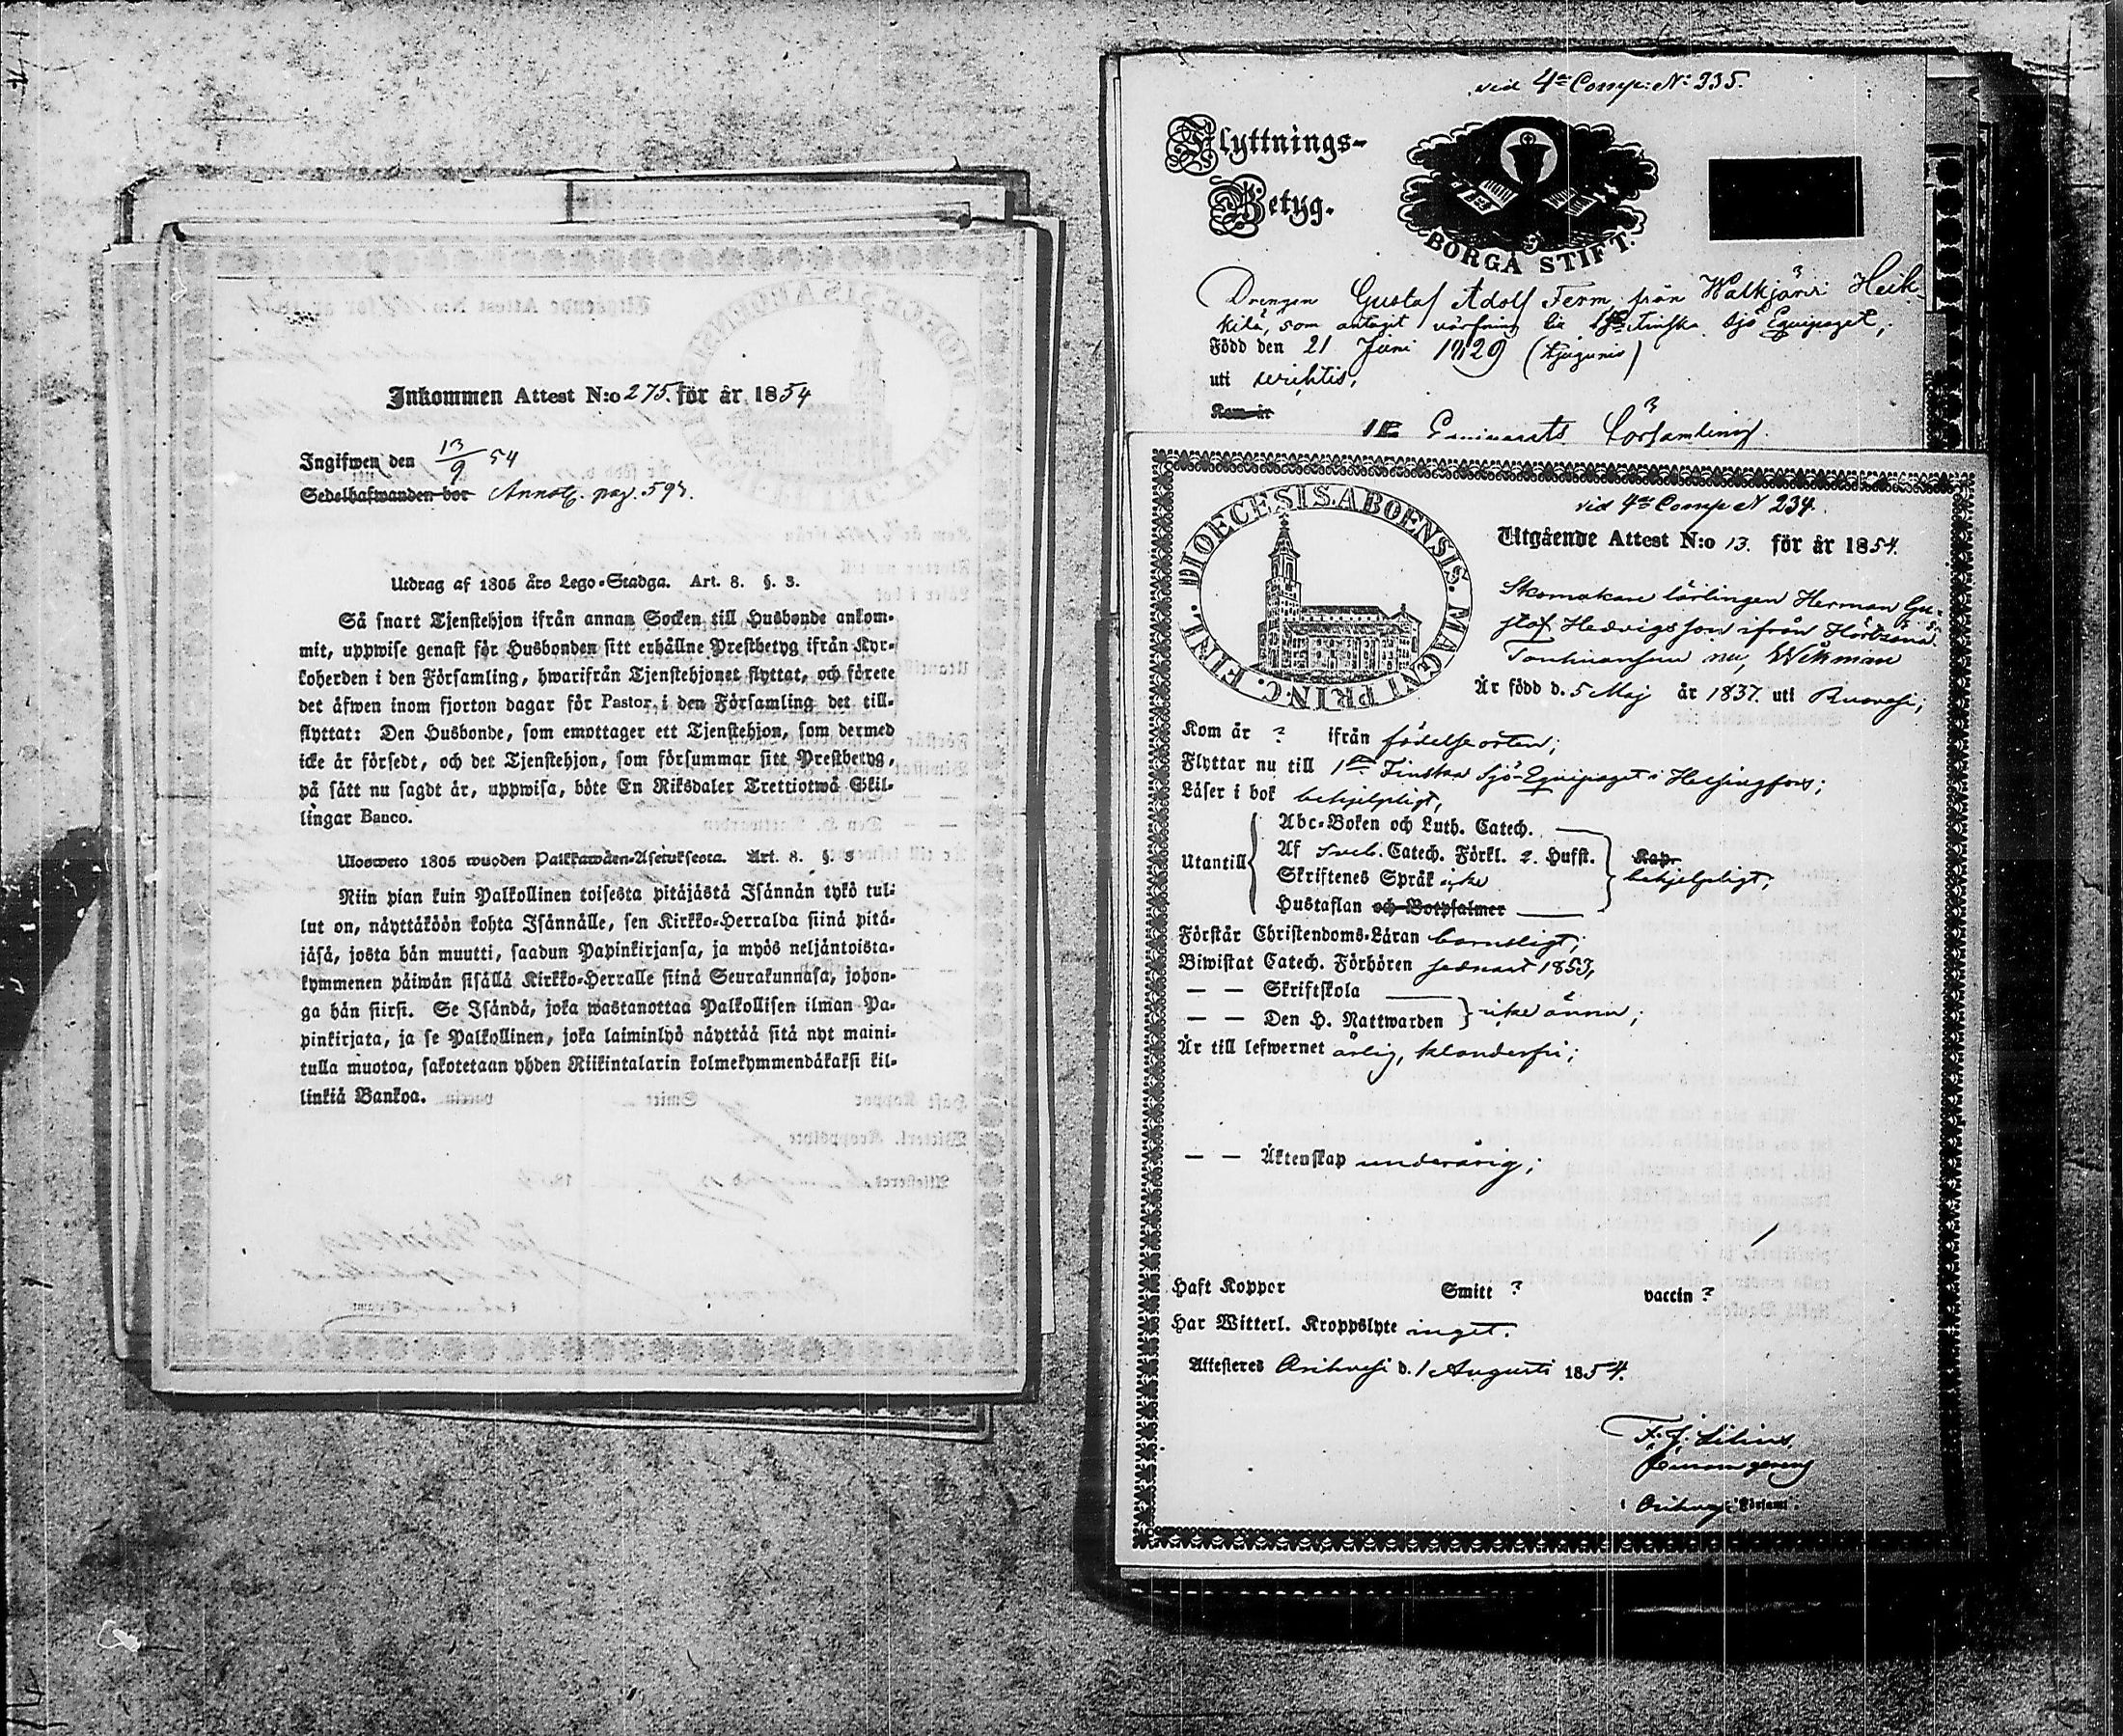 Inkommen Attest N:o 275. för år 1854
Ingifwen den 13/9 54
Sedelhafwanden bor Annotb. pag. 597.
Utdrag af 1805 års Lego-Stadga. Art. 8. §. 3.
Så snart Tjenstehjon ifrån annan Socken till Husbonde ankom-
mit, uppwise genast för Husbonden sitt erhållne Prestbetyg ifrån Kyr-
koherden i den Församling, hwarifrån Tjenstehjonet flyttat, och förete
det äfwen inom fjorton dagar för Pastor i den Församling det till-
flyttat: Den Husbonde, som emottager ett Tjenstehjon, som dermed
icke är försedt, och det Tjenstehjon, som försummar sitt Prestbetyg,
på sätt nu sagdt är, uppwisa, böte En Riksdaler Trettiotwå Skil-
lingar Banco.
Ulosweto 1805 wuoden Palkkawäen-Asetuksesta. Art. 8. §. 3
Niin pian kuin Palkollinen toisesta pitäjästä Isännän tykö tul-
lut on, näyttäköön kohta Isännälle, sen Kirkko-Herralda siinä pitä-
jäsä, josta hän muutti, saadun Papinkirjansa, ja myös neljäntoista-
kymmenen päiwän sisällä Kirkko-Herralle siinä Seurakunnasa, johon-
ga hän siirsi. Se Isändä, joka wastanottaa Palkollisen ilman Pa-
pinkirjata, ja se Palkollinen, joka laiminlyö näyttää sitä nyt maini-
tulla muotoa, sakotetaan yhden Riikintalarin kolmekymmendäkaksi kil-
linkiä Bankoa.
vid 4de Comp: N: 235.
Flyttnings-
Betyg.
BORGÅ STIFT.
Drengen Gustaf Adolf Ferm, från Walkjärvi Heik-
kilä, som antagit värfning
Sjö Equipaget,
Född den 21 Juni 1829 (tjugunio)
uti
Kom år
Församling
vid 4de Comp N 234.
DIOECESIS ABOENSIS. MAGNI PRINC. FINL.
Utgående Attest N:o 13. för år 1854.
Skomakare lärlingen Herman Gu-
staf Hedvigsson ifrån
nu, Wikman
Är född d. 5 Maj år 1837. uti Ruovesi;
Kom år ? ifrån födelseorten;
Flyttar nu till 1sta Finska Sjö-Equipaget i Helsingfors;
Läser i bok behjelpligt,
Utantill
Abc-Boken och Luth. Catech.
Af Sveb. Catech. Förkl. 2. Hufst.
Skriftenes Språk icke
Hustaflan och Botpsalmer
Kap.
behjelpligt;
Förstår Christendoms-Läran barnsligt;
Biwistat Catech. Förhören sednast 1853,
— — Skriftskola
— — Den H. Nattwarden
icke ännu;
Är till lefwernet ärlig, klanderfri;
— — Äktenskap underårig;
Haft Koppor Smitt ? vaccin ?
Har Witterl. Kroppslyte inget.
Attesteres Orihvesi d. 1 Augusti 1854.
F. J. Lilius
i Orihvesi Församl.